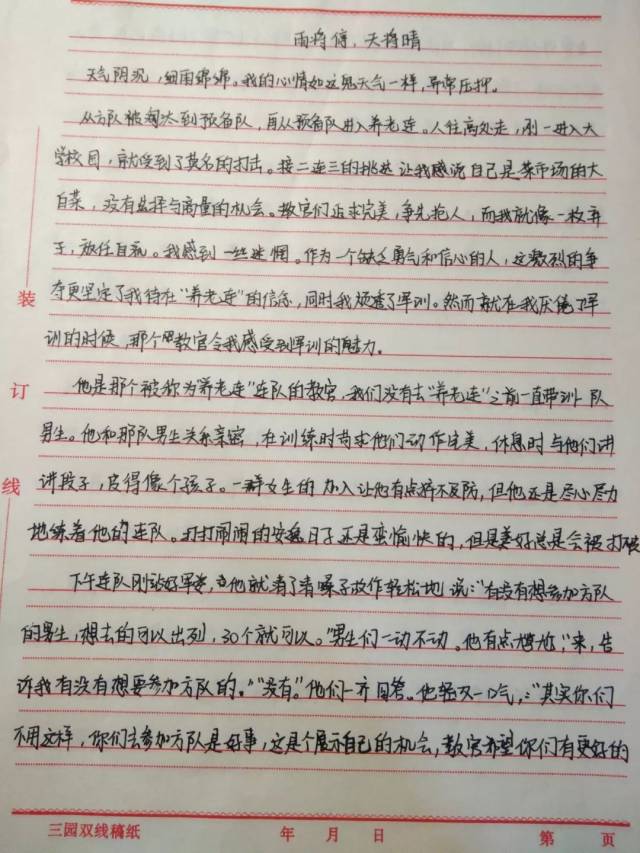 雨将停，天将晴
天气阴沉，细雨绵绵。我的心情如这鬼天气一样，异常压押。
从方队被淘汰到预备队，再从预备队进入养老连。人往高处走，刚一进入大
学校园，就受到了莫名的打击。接二连三的挑选让我感觉自己是菜市场的大
白菜，没有选择与商量的机会。教官们追求完美，争先抢人，而我就像一枚弃
子，放任自流。我感到一丝迷惘。作为一个缺乏勇气和信心的人，这激烈的争
夺更坚定了我待在"养老连"的信念，同时我烦透了军训。然而就在我厌倦了军
装
训的时候，那个教官令我感受到军训的魅力。
他是那个被称为"养老连"连队的教官，我们没有去"养老连"之前一直带训队
订
男生。他和那队男生关系亲密，在训练时苛求他们动作完美，休息时与他们讲
讲段子，皮得像个孩子。一群女生的加入让他有点猝不及防，但他还是尽心尽力
线
地练着他的连队。打打闹闹的安逸日子还是蛮愉快的，但是美好总是会被打破
下午连队刚站好军姿，他就清了清嗓子故作轻松地说："有没有想参加方队
的男生，想去的可以出列，30个就可以。"男生们一动不动。他有点尴尬，"来，告
诉我有没有想要参加方队的。""没有。"他们一齐回答。他轻叹一口气，："其实你们
不用这样，你们去参加方队是好事，这是个展示自己的机会，教官希望你们有更好的
三园双线稿纸 年 月 日 第 页